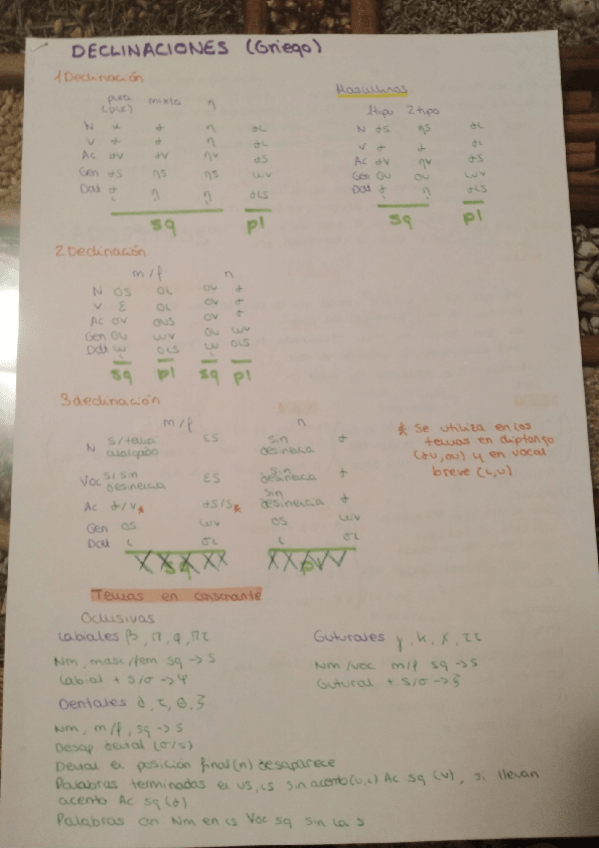 DECLINACIONES (Griego)
1 Declinación
pura mixta η
N α α η αι
V α α η αι
Ac αν αν ην ας
Gen ας ης ης ων
Dat ᾳ ῃ ῃ αις
sg pl
Masculinos
1tipo 2tipo
N ας ης αι
V α α αι
Ac αν ην ας
Gen ου ου ων
Dat ᾳ ῃ αις
sg pl
2 Declinación
m/f n
N ος οι ον α
V ε οι ον α
Ac ον ους ον α
Gen ου ων ου ων
Dat ῳ οις ῳ οις
sg pl sg pl
3 declinación
m/f n
N s/tema alargado ες sin desinencia α
Voc s/sin desinencia ες sin desinencia α
Ac α/ν* ας/s* sin desinencia α
Gen ος ων ος ων
Dat ι σι ι σι
sg pl
* Se utiliza en los
temas en diptongo
(αυ, ου) y en vocal
breve (ι, υ)
Temas en consonante
Oclusivas
Labiales β, π, φ, πτ
Nm, masc/fem sg → s
Labial + s/σ → ψ
Guturales γ, κ, χ, ττ
Nm/voc m/f sg → s
Gutural + s/σ → ξ
Dentales δ, τ, θ, ζ
Nm, m/f, sg → s
Desap dental (σ/s)
Dental en posición final (n) desaparece
Palabras terminadas en υs, ιs sin acento (υ, ι) Ac sg (ν), si llevan
acento Ac sg (α)
Palabras con Nm en ιs Voc sg sin la s